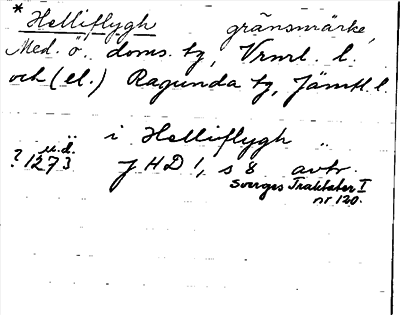 * Helliflygh gränsmärke,
Med. ö. doms. tg, Vrml. l.
och (el.) Ragunda tg, Jämtl. l.
i Helliflygh
? u.å. 1273 JHD 1, s 8 avtr.
Sveriges Traktater I
nr 120.